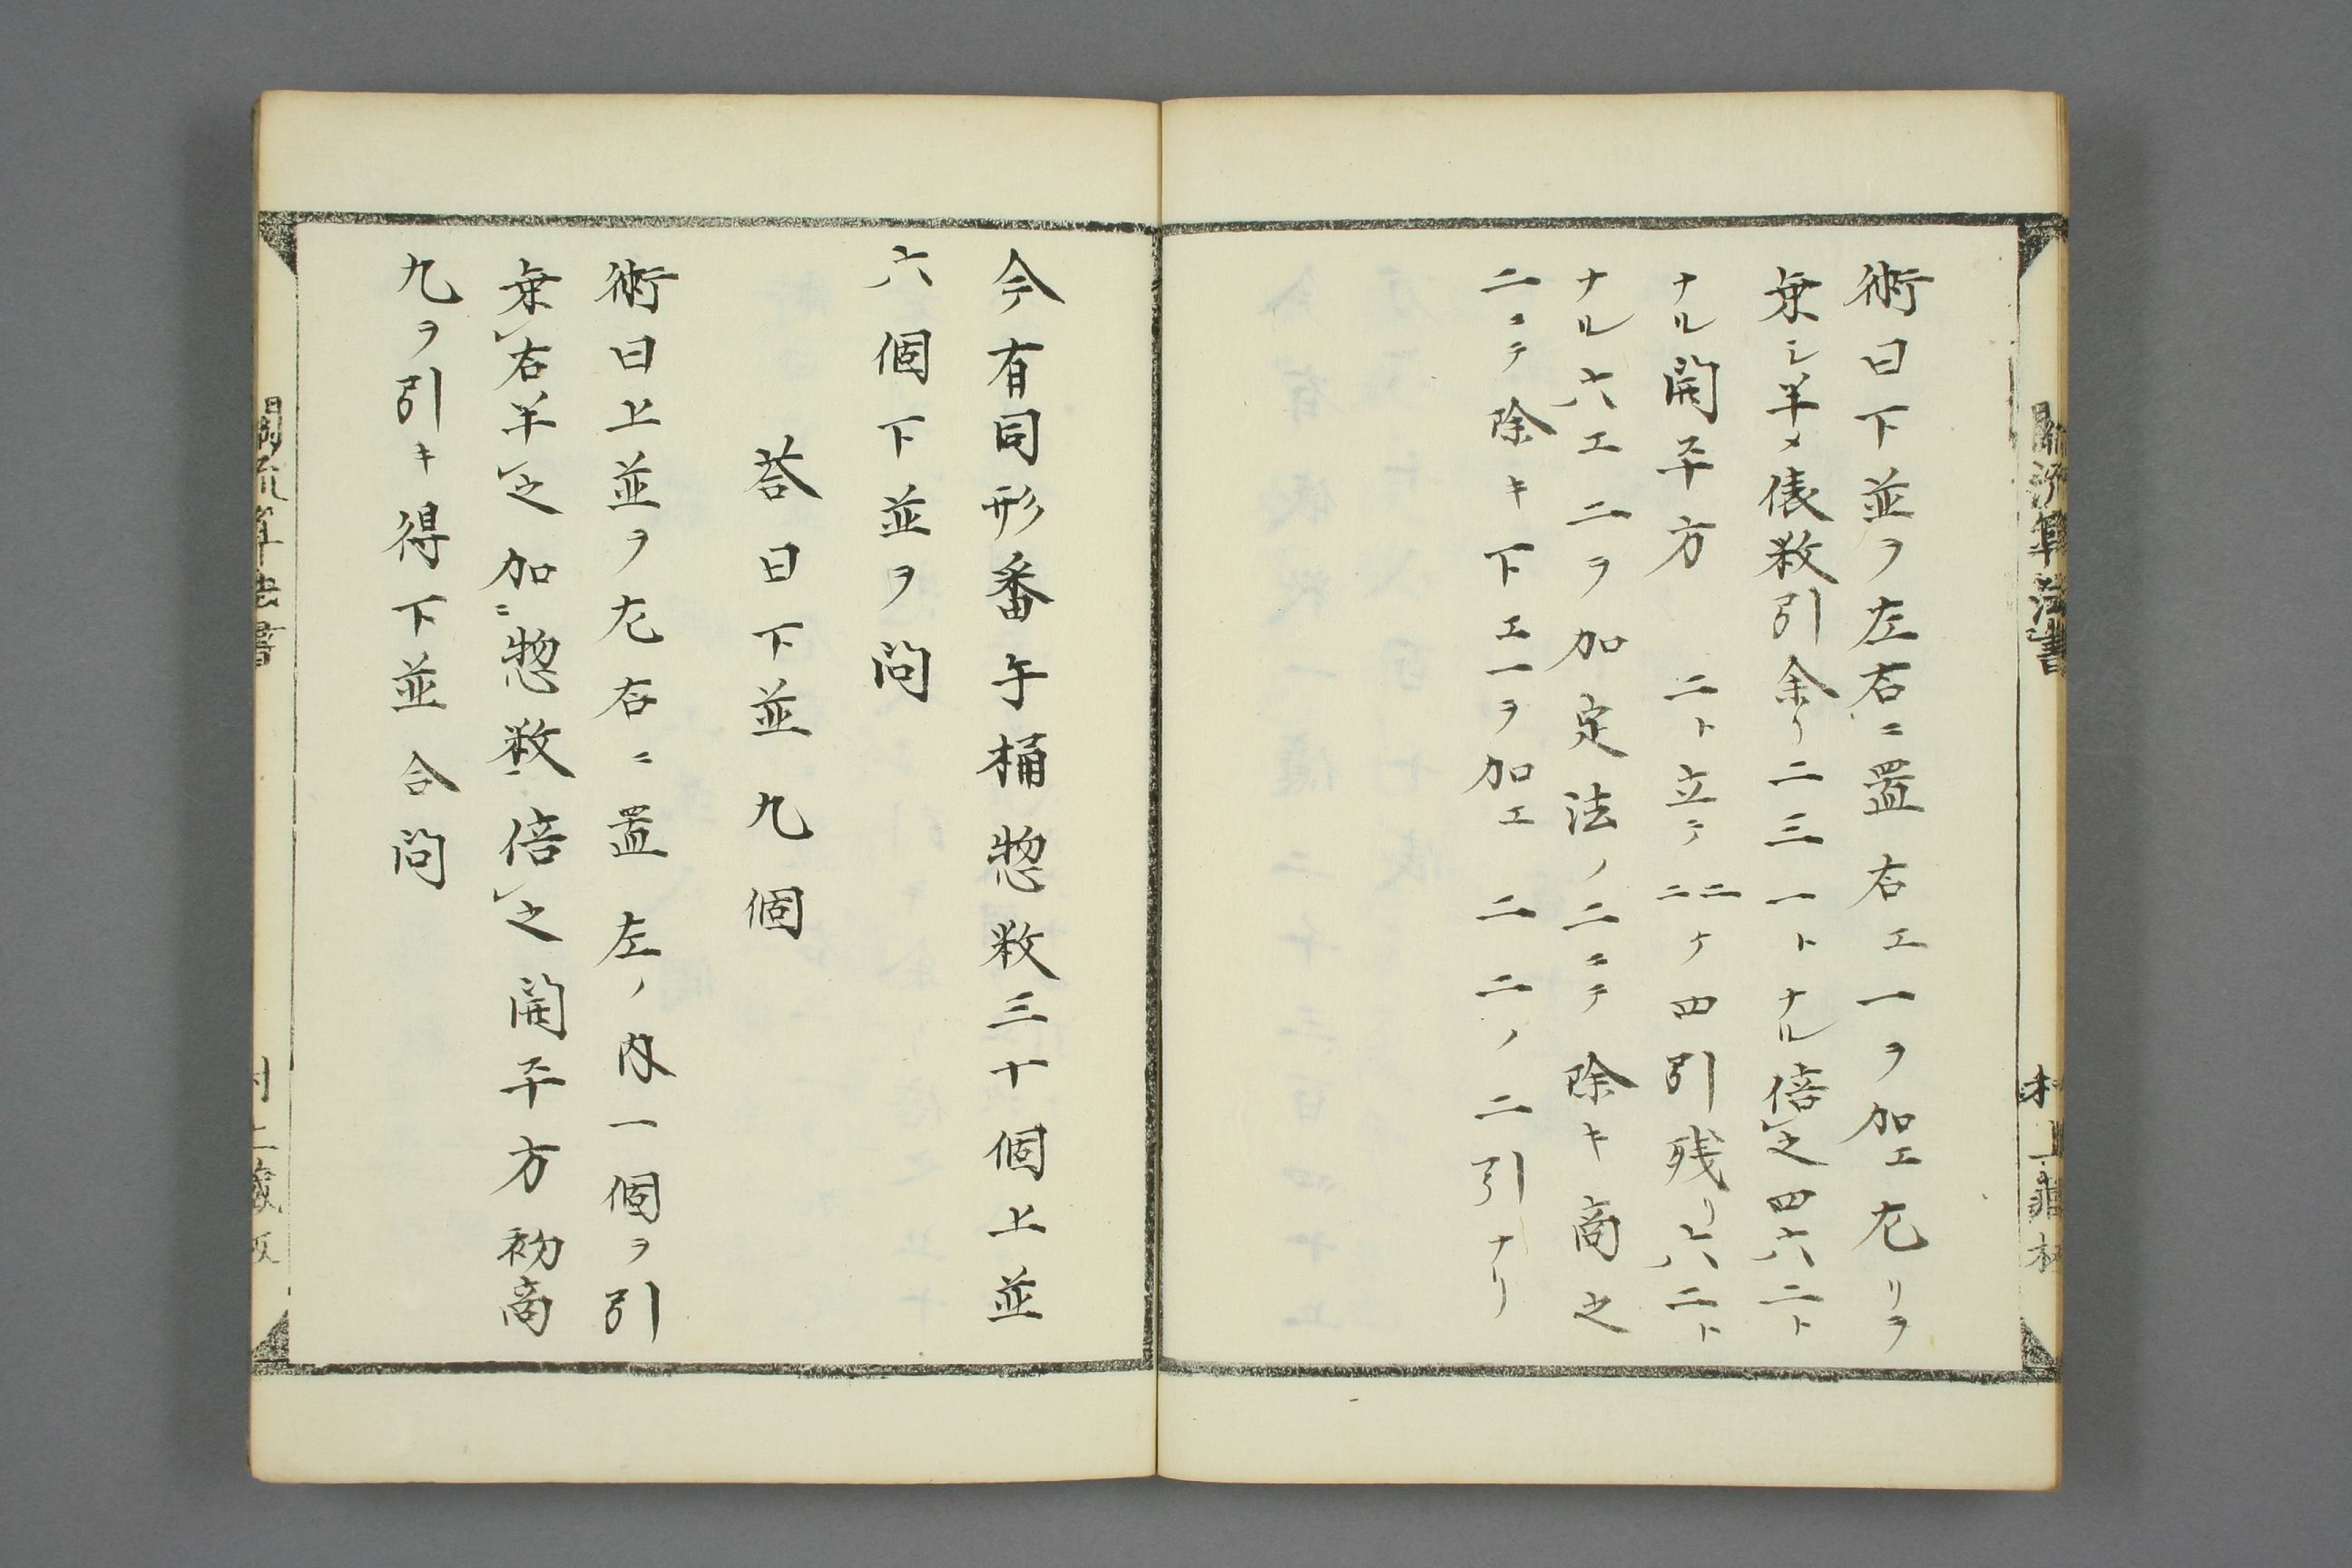 術曰下並ヲ左右ニ置右エ一ヲ加エ左リヲ
乗シ半メ俵数引余リ二三一トナル倍之四六二ト
ナル開平方 二ト立テ二二ケ四引残リ六二ト
ナル六エ二ヲ加定法ノ二ニテ除キ商之
二ニテ除キ下エ一ヲ加エ二二ノ二引ナリ
今有同形番午桶惣数三十個上並
六個下並ヲ問
荅曰下並九個
術曰上並ヲ左右ニ置左ノ内一個ヲ引
乗右半之加ニ惣数倍之開平方初商
九ヲ引キ得下並合問
関流算法書
村上蔵板